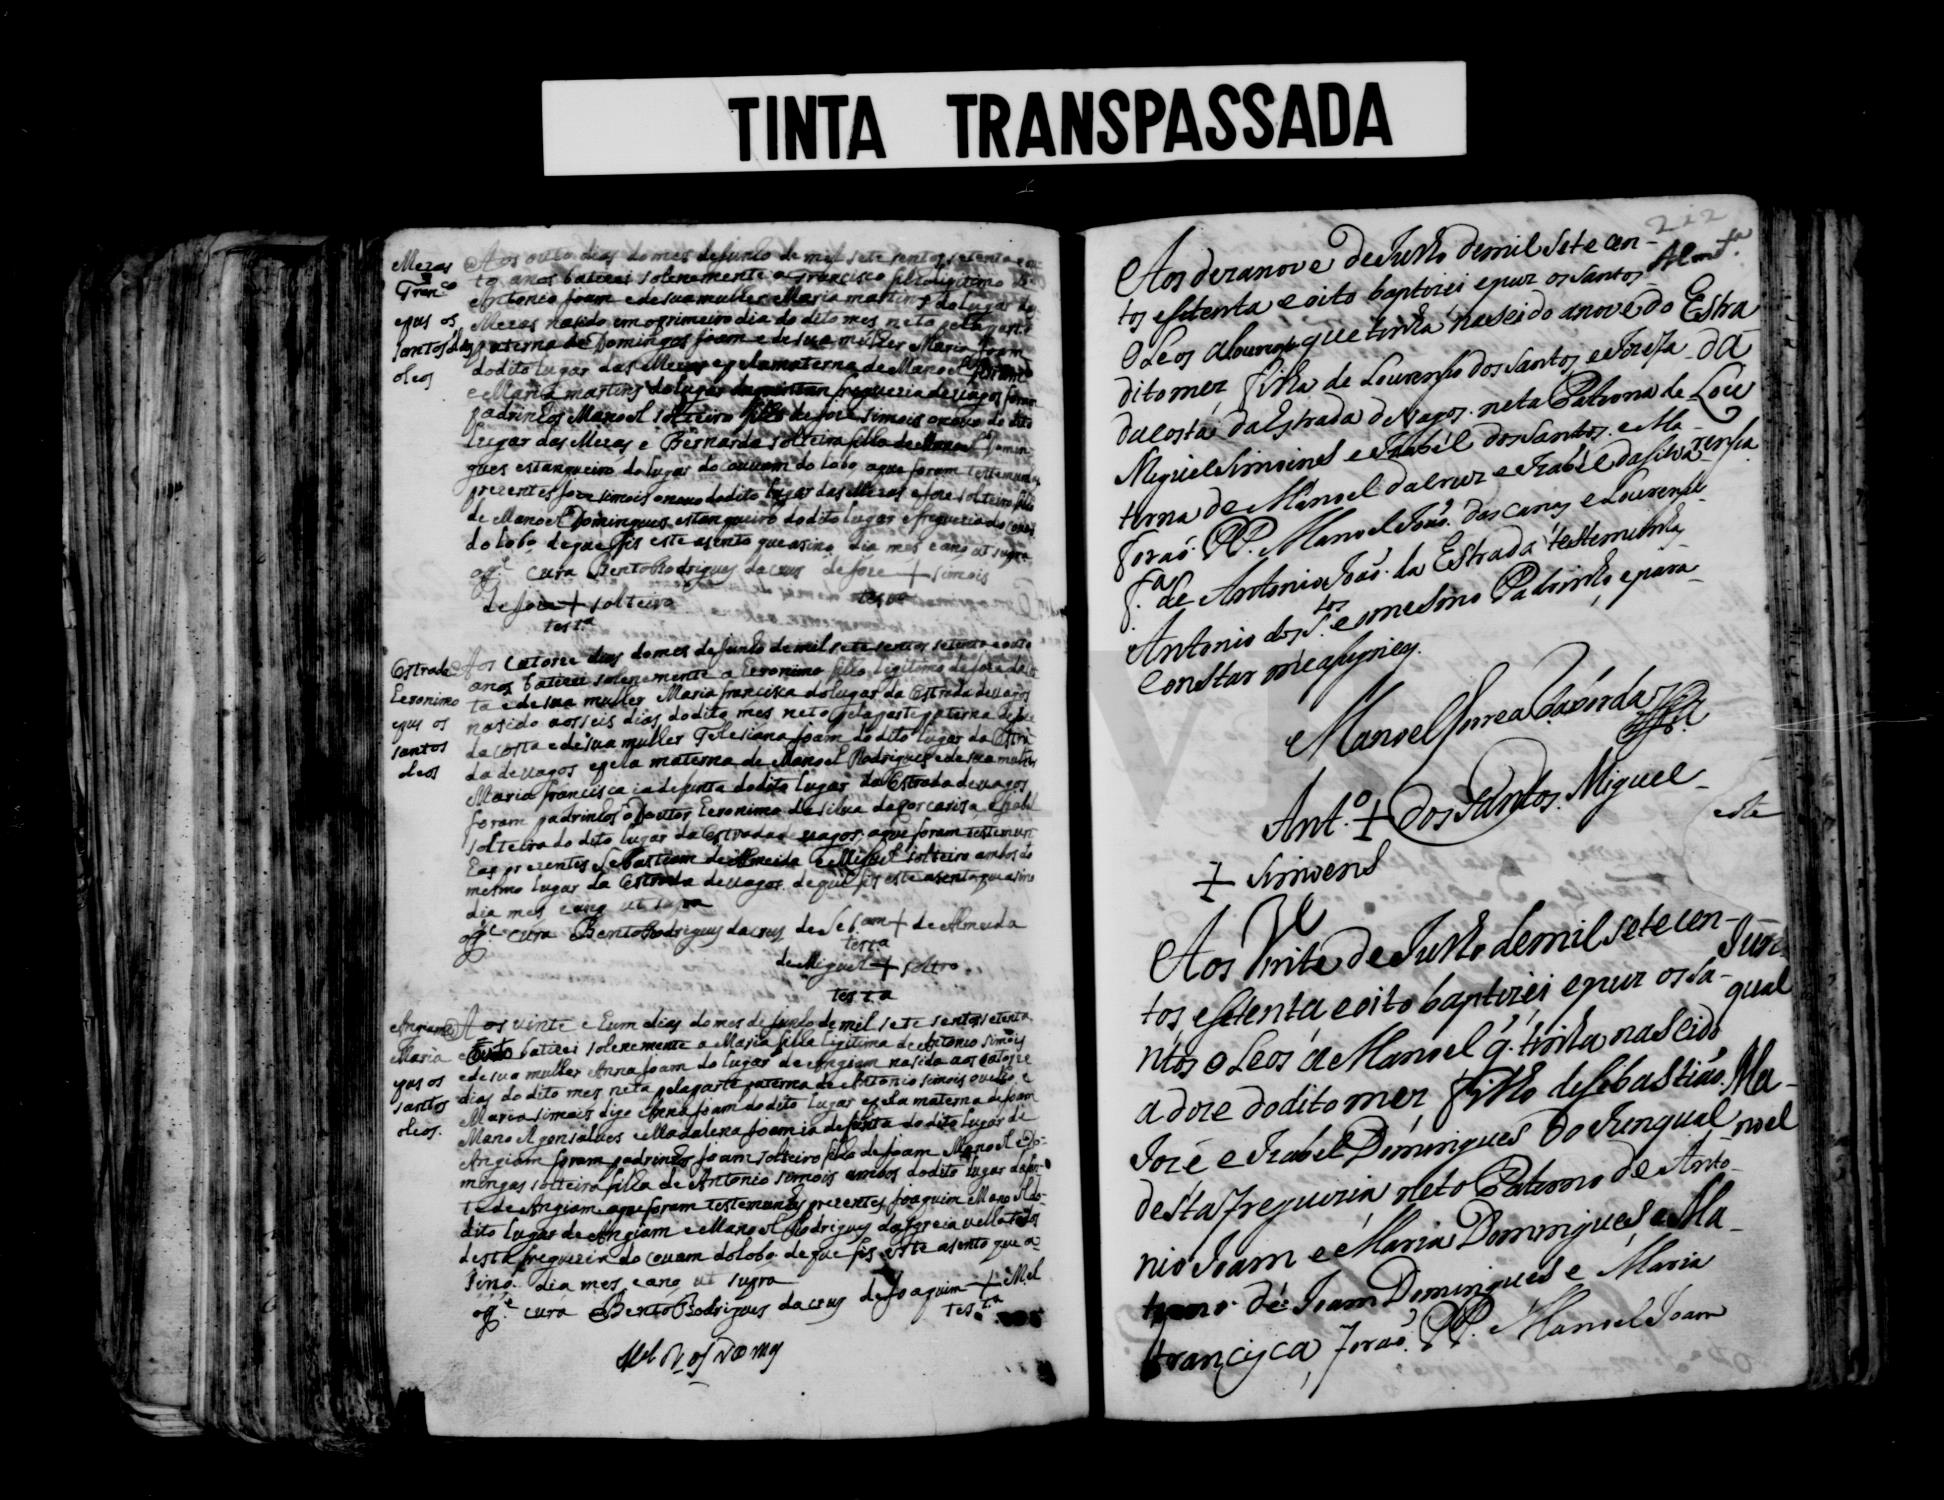 TINTA TRANSPASSADA
Mezas
Fran.co
e pus os
santos
oleos
Aos outo dias do mes de Junho de mil sete sentos setenta e ou
to anos batizei solenemente a Francisco filho ligitimo de
Antonio Joam e de sua mulher Maria martins do lugar das
Mezas nasido em o primeiro dia do dito mes neto pela parte
paterna de Domingos Joam e de sua mulher Maria Joam
do dito lugar das Mezas e pela materna de Manoel
e Maria martins do lugar freguezia de uagos foram
padrinhos Manoel solteiro filho de Joze simois o novo do dito
lugar das Mezas e Bernarda solteira filha de Manoel Domin
gues estanqueiro do lugar do couvam do lobo a que foram testemunhas
prezentes Joze simois o novo do dito lugar das Mezas e Joze solteiro filho
de Manoel Domingues estanqueiro do dito lugar e freguezia do Couvam
do lobo de que fis este asento que asino dia mes e ano ut supra
cura Bento Rodrigues da crus de Joze + simois
de Joze + solteiro
test.a
Estrada
Heronimo
e pus os
santos
oleos
Aos catorze dias do mes de Junho de mil sete sentos setenta e outo
anos batizei solenemente a Heronimo filho ligitimo de Joze da cos
ta e de sua mulher Maria francisca do lugar da Estrada de uagos
nasido aos seis dias do dito mes neto pela parte paterna de Joze
da costa e de sua mulher Joam do dito lugar da Estra
da de uagos e pela materna de Manoel Rodrigues e de sua mulher
Maria francisca ia defunta do dito lugar da Estrada de uagos
foram padrinhos o Doutor Heronimo da silua da e Izabel
solteira do dito lugar da Estrada de uagos a que foram testemun
has prezentes Sebastiam de Almeida e Miguel solteiro ambos do
mesmo lugar da Estrada de uagos de que fis este asento que asino
dia mes e ano ut supra
cura Bento Rodrigues da crus de Seb.am + de Almeida
testa
de Miguel + soltro
testa
Angiam
Maria
e pus os
santos
oleos.
Aos uinte e hum dias do mes de Junho de mil sete sentos setenta
e outo batizei solenemente a Maria filha ligitima de Antonio simois
e de sua mulher Anna Joam do lugar de Angiam nasida aos catorze
dias do dito mes neta pela parte paterna de Antonio simois o uelho e
Maria simois digo Anna Joam do dito lugar e pela materna de Joam
Manoel gonsalues e Madalena Joam ia defunta do dito lugar de
Angiam foram padrinhos Joam solteiro filho de Joam Manoel e Do
mingas solteira filha de Antonio simois ambos do dito lugar da fon
te de Angiam a que foram testemunhas prezentes Joaquim Manoel do
dito lugar de Angiam e Manoel Rodrigues da Igreia uelha todos
desta freguezia do couam do lobo de que fis este asento que a
sino. dia mes e ano ut supra
cura Bento Rodrigues da crus de Joaquim + M.el
tes.ta
212
Aos dezanove de Junho de mil sete cen-
tos e setenta e oito baptizei e puz os santos
oleos a Lourença que tinha nascido a nove do
dito mez filha de Lourenço dos Santos, e Jozefa
da costa da Estrada de Vagos. neta Paterna de
Miguel Simoens e Izabel dos Santos e Ma-
terna de Manoel da cruz e Izabel da Silva
foraõ PP. Manoel Joaõ. das canas e Lourença
f.a de Antonio Joaõ. da Estrada testemunhas
Antonio dos S.tos e o mesmo Padrinho, e para
constar me asigney.
Estra
da
Lou
rença
Manoel Correa Taborda
Ant.o + dos Santos. Miguel
+ Simoens
este
Aos Vinte de Junho de mil sete cen-
tos e setenta e oito baptizei e puz os sa-
ntos oleos a Manoel q. tinha nascido
a doze do dito mez filho de Sebastiaõ
Jozé e Izabel Domingues do Junqual
desta freguezia neto Paterno de Anto-
nio Joam e Maria Domingues e Ma-
terno de Joam Domingues e Maria
francisca, foraõ. PP. Manoel Joam
Jun-
qual
Ma-
noel